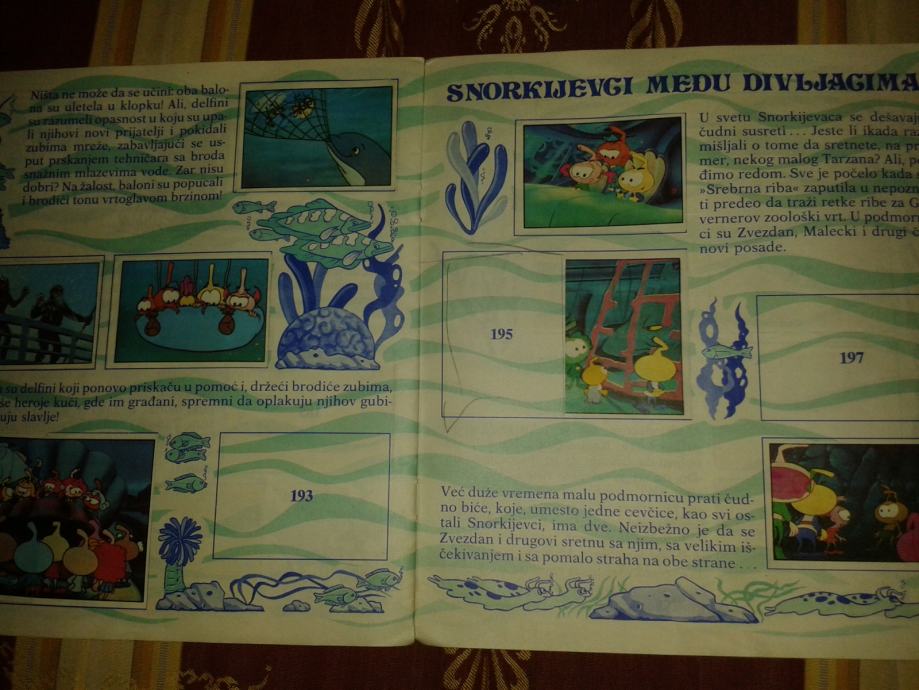 Ništa ne može da se učini: oba balo-
na su uletela u klopku! Ali, delfini
su razumeli opasnost u koju su upa-
li njihovi novi prijatelji i pokidali
zubima mreže, zabavljajući se us-
put prskanjem tehničara sa broda
snažnim mlazevima vode. Zar nisu
dobri? Na žalost, baloni su popucali
i brodići tonu vrtoglavom brzinom!
su delfini koji ponovo priskaču u pomoć i, držeći brodiće zubima,
še heroje kući, gde im građani, spremni da oplakuju njihov gubi-
uju slavlje!
193
SNORKIJEVCI MEĐU DIVLJACIMA
U svetu Snorkijevaca se dešavaj
čudni susreti... Jeste li ikada ra
mišljali o tome da sretnete, na pr
mer, nekog malog Tarzana? Ali, p
đimo redom. Sve je počelo kada
»Srebrna riba« zaputila u nepoz
ti predeo da traži retke ribe za G
vernerov zoološki vrt. U podmor
ci su Zvezdan, Malecki i drugi č
novi posade.
195
197
Već duže vremena malu podmornicu prati čud-
no biće, koje, umesto jedne cevčice, kao svi os-
tali Snorkijevci, ima dve. Neizbežno je da se
Zvezdan i drugovi sretnu sa njim, sa velikim iš-
čekivanjem i sa pomalo straha na obe strane...